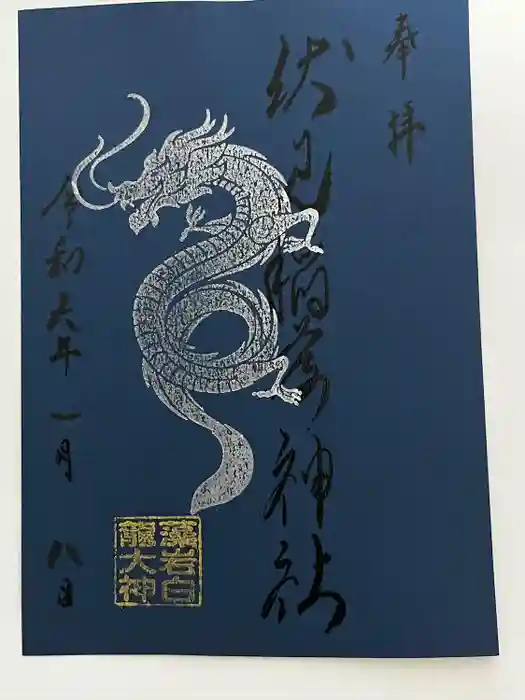 奉拝
伏見稲荷神社
令和六年一月八日
藻岩白
龍大神